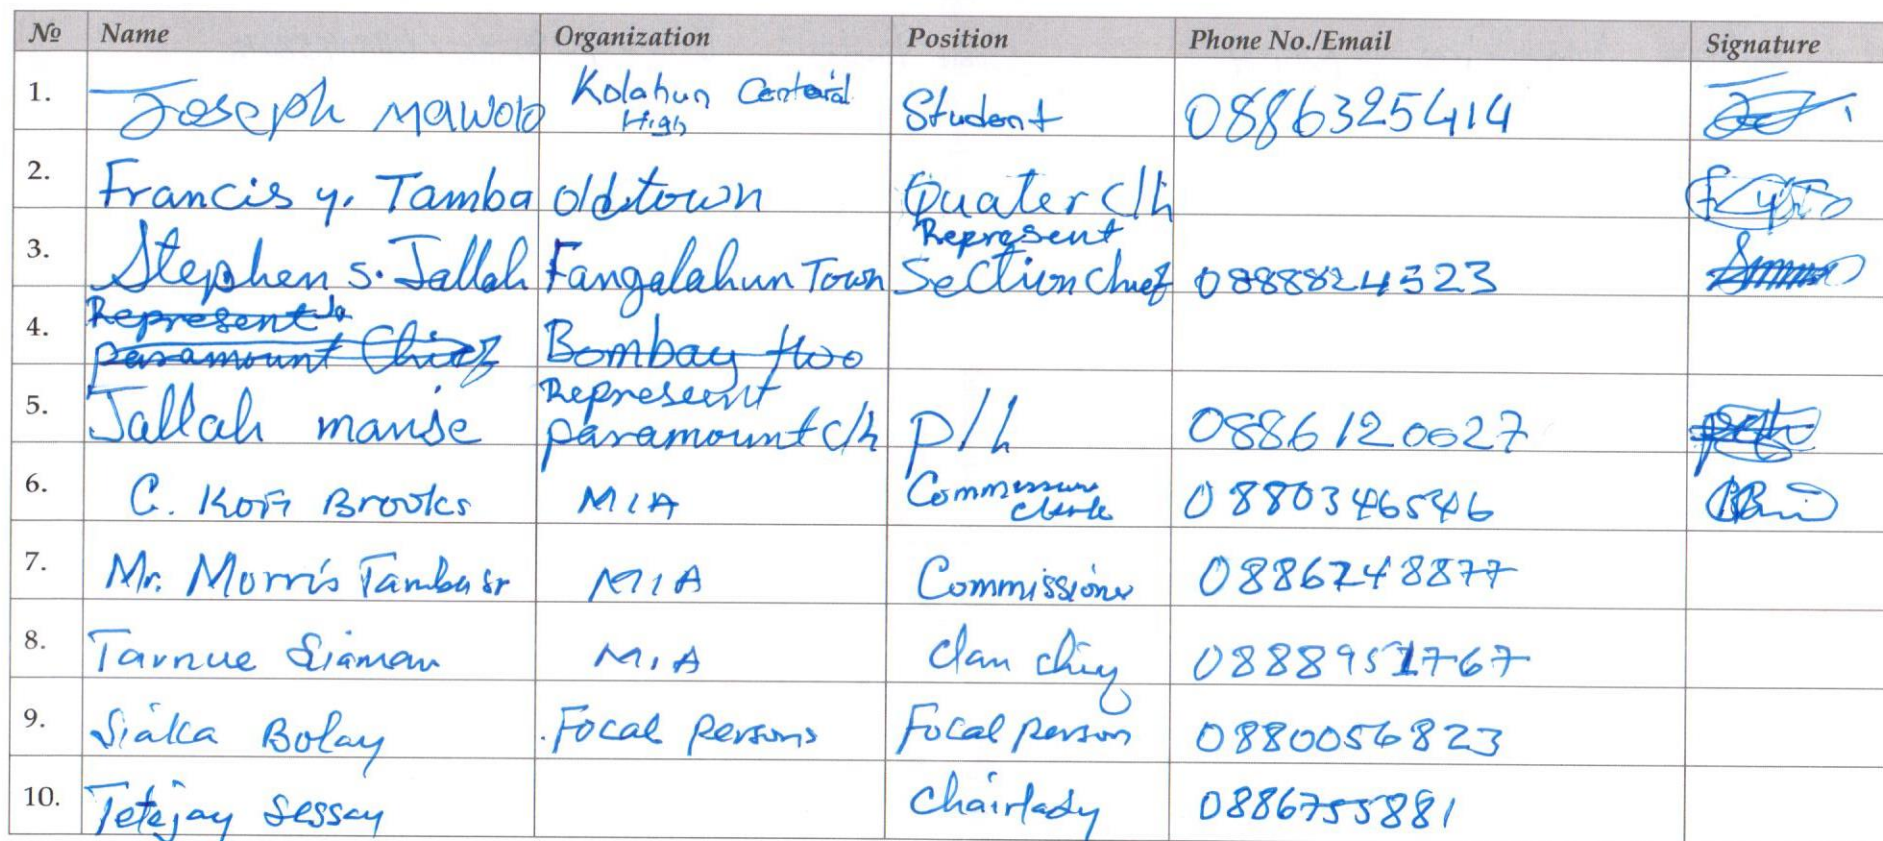 № Name Organization Position Phone No./Email Signature
1. Joseph Mawolo Kolahun Centeral High Student 0886325414
2. Francis y. Tamba old town Quater c/h
3. Stephen S. Jallah Fangalahun Town Represent Section Chief 0888824523
4. Represent paramount Chief Bombay two
5. Jallah manse Represent paramount c/h p/h 0886120627
6. C. Kofi Brooks MIA 0880346546
7. Mr. Morris Tamba sr MIA Commissioner 0886248877
8. Tarnue Siaman M.I.A Clan chief 0888951767
9. Siaka Bolay Focal persons Focal person 0880056823
10. Tetejay Sessay Chairlady 0886755881